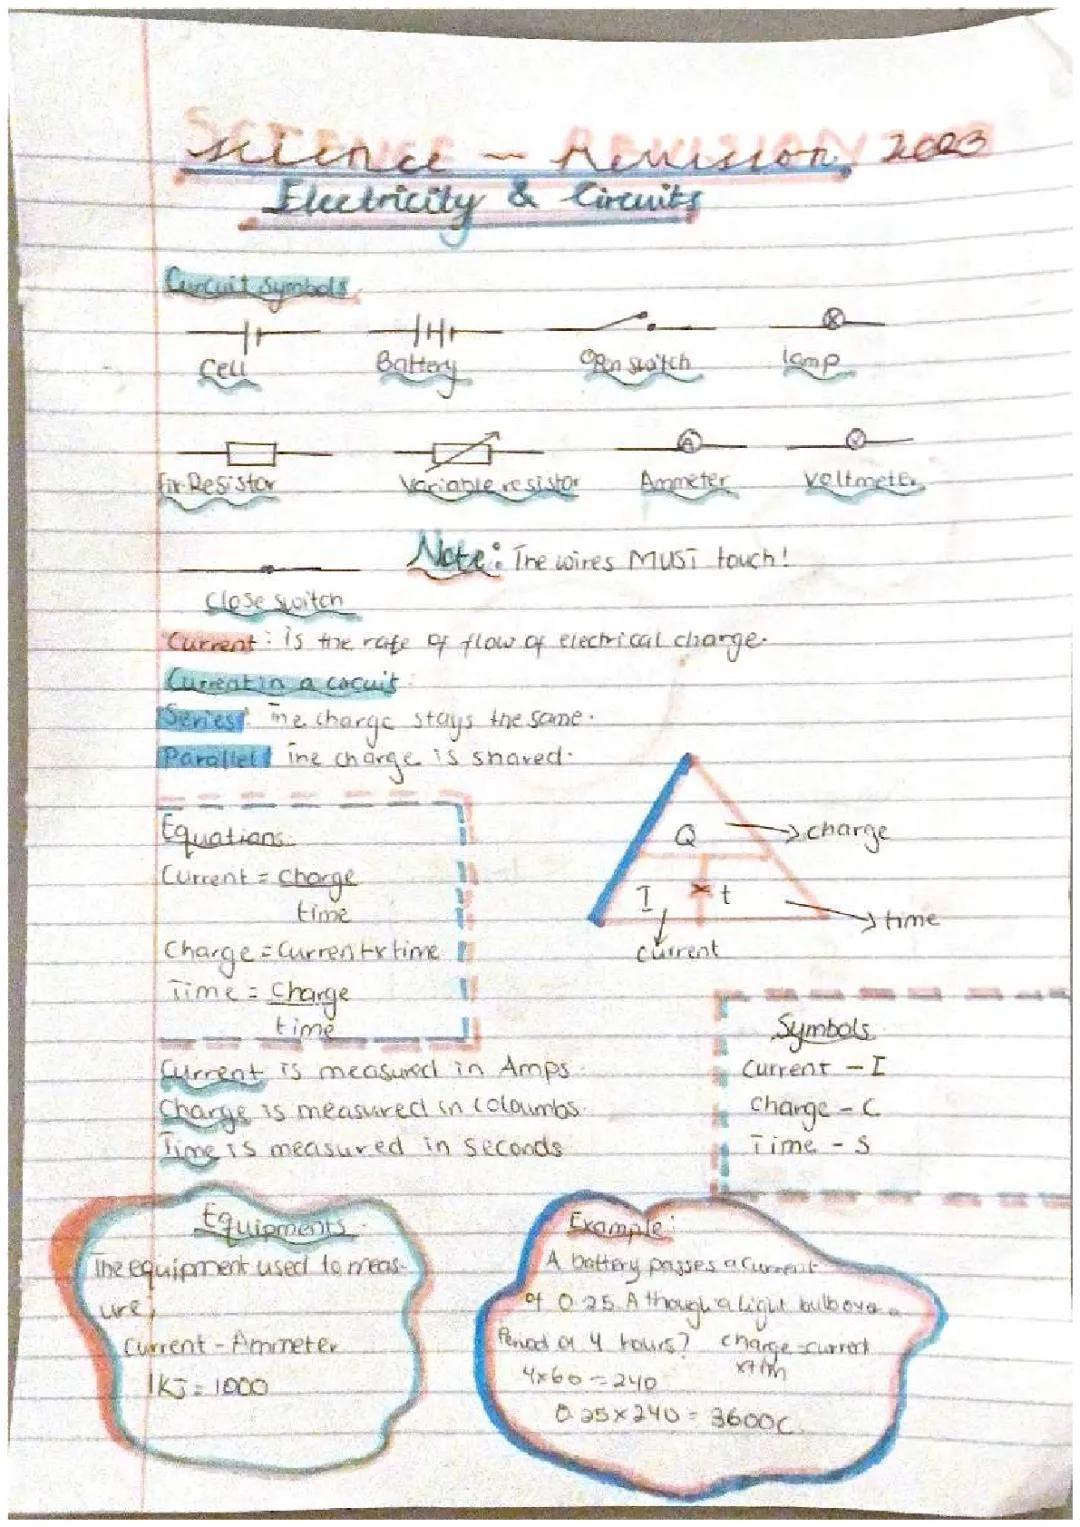 Science - Revision 2023
Electricity & Circuits
Curcuit Symbols
Cell Battery Open switch lamp
A V
fix Resistor Variable resistor Ammeter Voltmeter
Note: The wires MUST touch!
Close switch
Current: is the rate of flow of electrical charge.
Current in a cocuit:
Series: The charge stays the same.
Parallel The charge is shared.
Equations:
Current = Charge
time
Charge = Current x time
Time = Charge
time
Q → charge
I × t
→ time
current
Current is measured in Amps.
Charge is measured in coloumbs.
Time is measured in seconds
Symbols
Current - I
Charge - C
Time - S
Equipments
The equipment used to meas-
ure,
Current - Ammeter
1KJ = 1000
Example:
A battery passes a current
of 0.25 A though a light bulb over a
Period of 4 hours? charge = current
4x60 = 240
0.25x240 = 3600C.